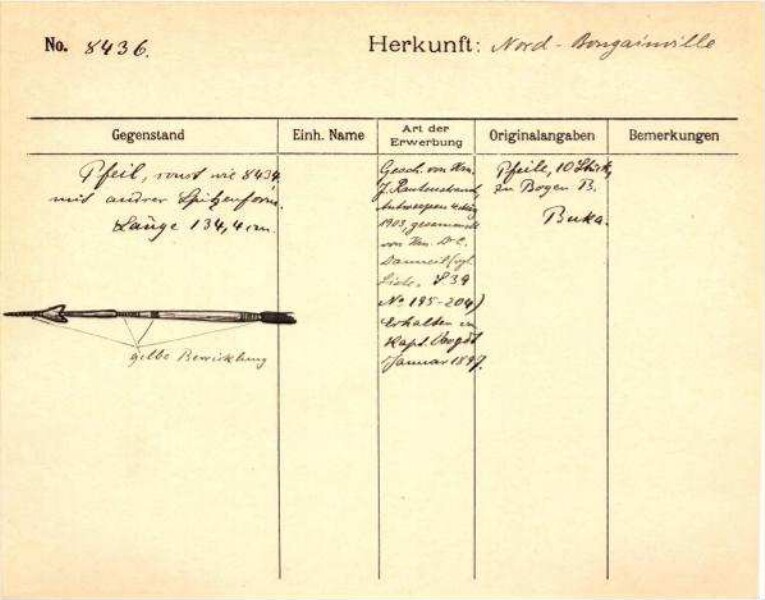 No. 8436.
Herkunft: Nord-Bougainville
Gegenstand
Einh. Name
Art der Erwerbung
Originalangaben
Bemerkungen
Pfeil, sonst wie 8434
mit andrer Spitzenform.
Länge 134,4 cm.
gelbe Bewicklung
Gesch. von Hrn.
J. Rautenstrauch,
Antwerpen
1903, gesammelt
von Hrn. Dr. C.
(vgl.
Liste, S 39
No 195-204)
Erhalten
Kapt.
Januar 1897.
Pfeile, 10 Stück,
zu Bogen B.
Buka.